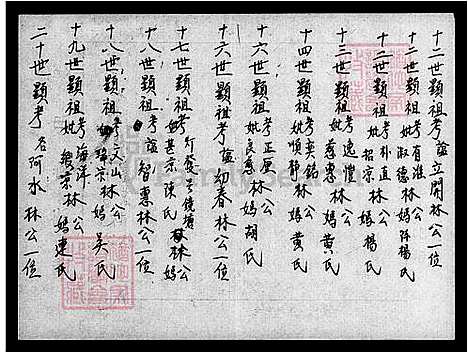 十二世顯祖考諡立開林公一位
十二世顯祖考有淮林公
妣淑德林媽陈楊氏
十二世顯祖考朴直林公
妣招宗林媽楊氏
十三世顯祖考逸惟林公
妣慈惠林媽黃氏
十四世顯祖考英銘林公
妣順静林媽黃氏
十六世顯祖考正厚林公
妣良慈林媽胡氏
十六世顯祖考諡初春林公一位
十七世顯祖考 林公
妣甚宗陳氏 媽
十八世顯祖考諡智惠林公一位
十八世顯祖考文山林公
妣 宗林媽吴氏
十九世顯祖考海洋林公
妣 宗林媽連氏
二十世顯考名阿水林公一位